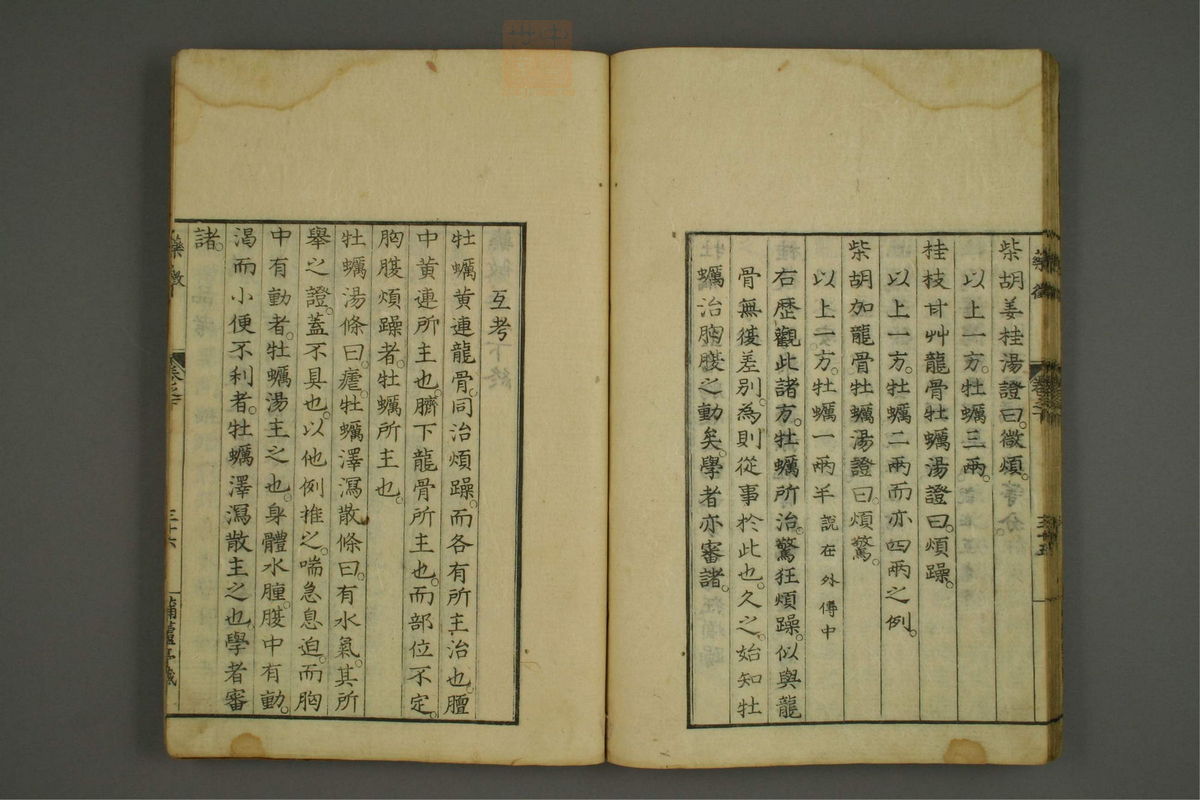 柴胡姜桂湯證曰。微煩。
以上一方。牡蠣三兩。
桂枝甘艸龍骨牡蠣湯證曰。煩躁。
以上一方。牡蠣二兩而亦四兩之例。
柴胡加龍骨牡蠣湯證曰。煩驚。
以上一方。牡蠣一兩半說在外傳中
右歷觀此諸方。牡蠣所治。驚狂煩躁。似與龍
骨無後差別。為則從事於此也。久之。始知牡
蠣治胸腹之動矣。學者亦審諸。
互考
牡蠣黃連龍骨。同治煩躁。而各有所主治也。膻
中黃連所主也。臍下龍骨所主也。而部位不定。
胸腹煩躁者。牡蠣所主也。
牡蠣湯條曰。瘧。牡蠣澤瀉散條曰。有水氣。其所
舉之證。蓋不具也。以他例推之。喘急息迫。而胸
中有動者。牡蠣湯主之也。身體水腫。腹中有動。
渴而小便不利者。牡蠣澤瀉散主之也。學者審
諸。
藥徵
三十六